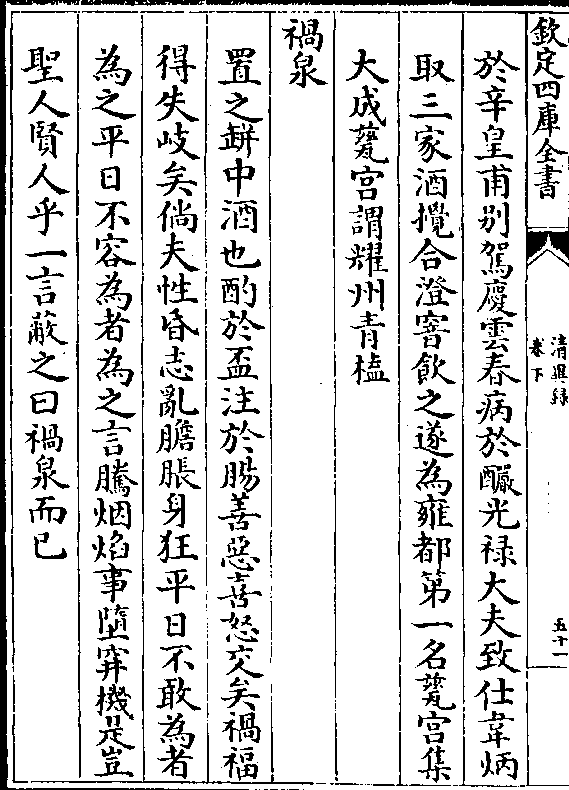 欽定四庫全書
清異錄
卷下
五十一
於辛皇甫別駕慶雲春病於釅光祿大夫致仕韋炳
取三家酒攪合澄窨飲之遂為雍都第一名甆宫集
大成甆宫謂耀州青榼
禍泉
置之缾中酒也酌於盃注於腸善惡喜怒交矣禍福
得失岐矣倘夫性昏志亂膽脹身狂平日不敢為者
為之平日不容為者為之言騰烟焰事墮穽機是豈
聖人賢人乎一言蔽之曰禍泉而已